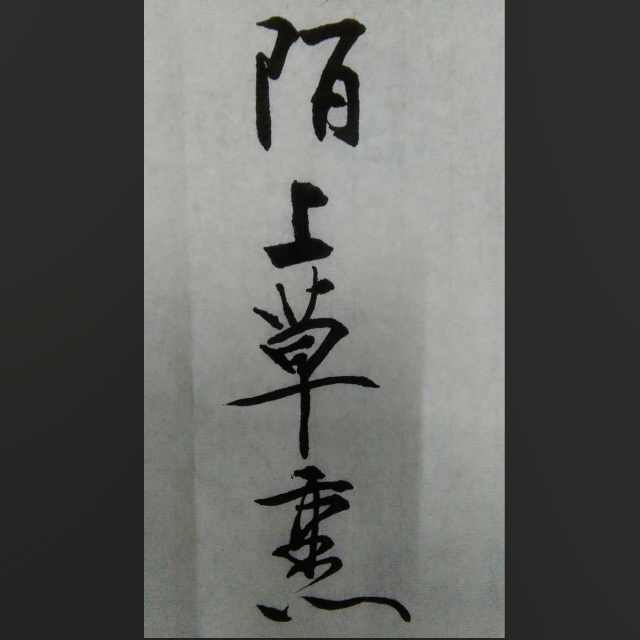 陌上草熏